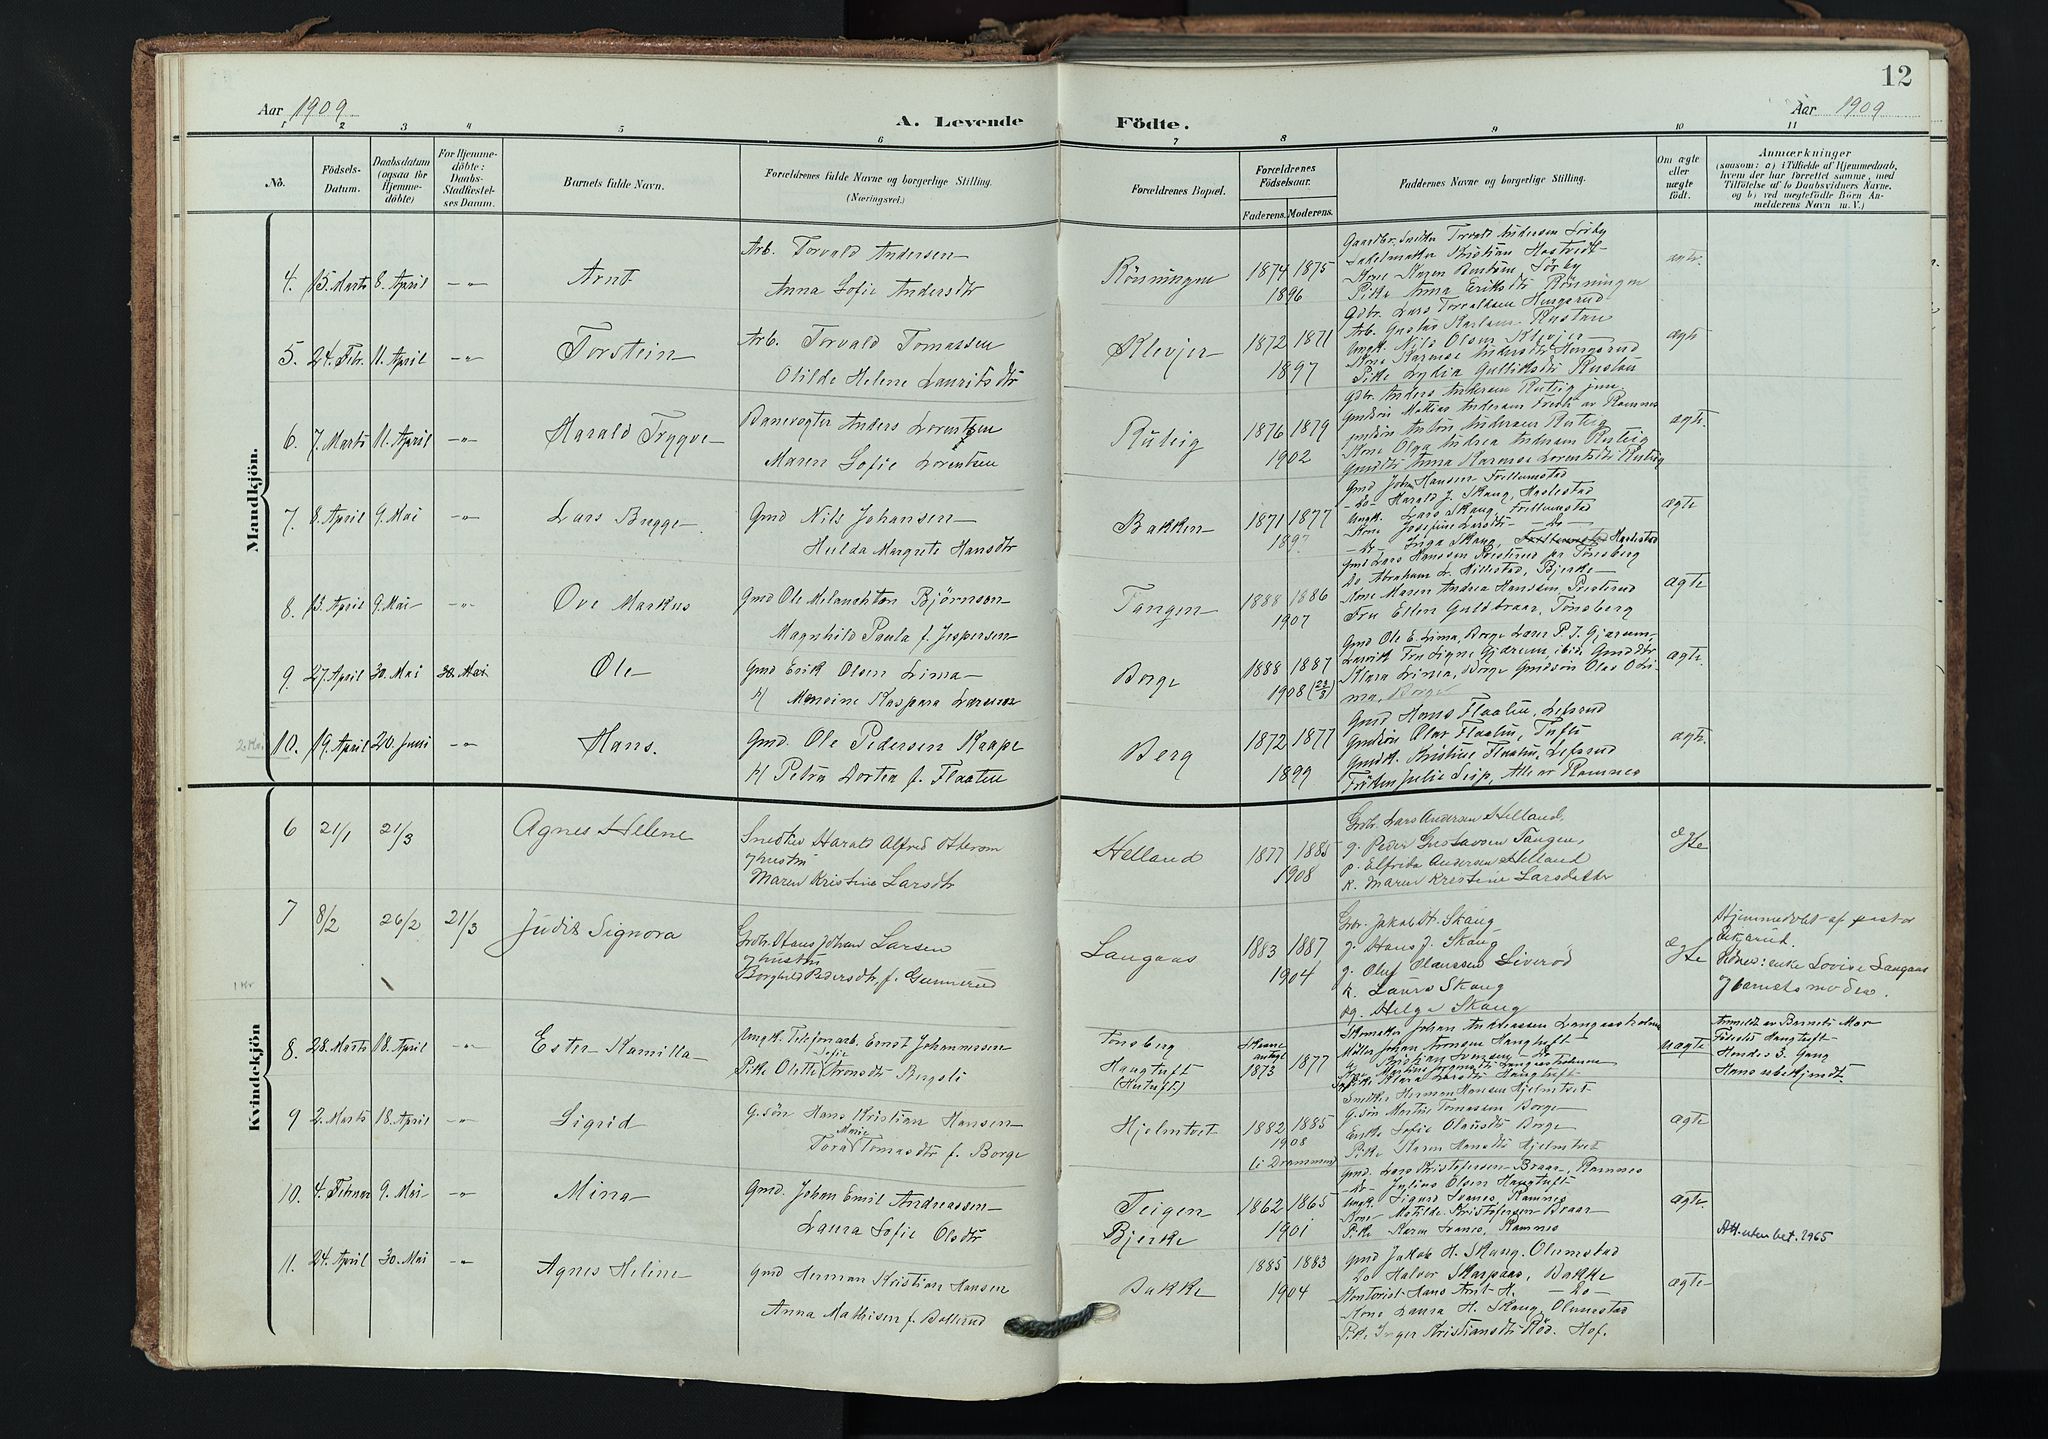 12
Aar 1909
A. Levende Födte.
Aar 1909
1 2 3 4 5 6 7 8 9 10 11
No.
Födsels-Datum.
Daabsdatum (ogsaa för Hjemmedöbte)
For Hjemmedöbte: Daabs-Stadfæstelses Datum.
Barnets fulde Navn.
Forældrenes fulde Navne og borgerlige Stilling. (Næringsvei.)
Forældrenes Bopæl.
Forældrenes Födselsaar.
Faderens. Moderens.
Faddernes Navne og borgerlige Stilling.
Om ægte eller uægte födt.
Anmærkninger
(saasom: a) i Tilfælde af Hjemmedaab, hvem der har forrettet samme, med Tilföielse af to Daabsvidners Navne, og b) ved uægtefödte Börn Anmelderens Navn m. V.)
Mandkjön.
4. 15. Marts 8. April -"- Arnt
Arb. Torvald Andersen
Anna Sofie Andersdtr
Rönningen 1874 1875 1896
Gaardbr. Snedker Torvald Andersen Sörby
Kristian Hostvedt
Kone Karen Sörby
Pike Anna Eriksdtr Rönningen
ægte
5. 24. Febr. 11. April -"- Torstein
Arb. Torvald Tomassen
Otilde Helene Lauritsdtr
Klevjer 1872 1871 1897
Gdbr. Lars Torvaldsen Hengsrud
Arb. Gustav Karlsen Rustan
Ungk. Nils Olsen Klevjer
Kone Karense Andersdtr Hengsrud
Pike Lydia Gulliksdtr Rustan
ægte
6. 7. Marts 11. April -"- Harald Trygve
Banevogter Anders Lorentzen
Maren Sofie Lorentsen
Rutvig 1876 1879 1902
Gdbr. Anders Andersen Rutvig jun.
Gmdsön Mathias Andersen av Ramnes
Gmdsön Anton Andersen Rutvig
Kone Olga Andrea Andersen Rutvig
Gmddtr Anna Karense Lorentsdtr Rutvig
ægte
7. 8. April 9. Mai -"- Lars Bugge
Gmd Nils Johansen
Hulda Margrete Hansdtr
Bakken 1871 1877 1897
Gmd Johan Hansen Frettumstad
-do- Harald J. Skaug, Haslestad
Ungk. Lars Skaug, Frettumstad
Kone Josefine Larsdtr -do-
-do- Inga Skaug, Haslestad
ægte
8. 13. April 9. Mai -"- Ove Markus
Gmd Ole Melanchton Björnsen
Magnhild Paula f. Jespersen
Tangen 1888 1886 1907
Gmd Lars Hanssen Presterud pr Tönsberg
Do Abraham L. Hillestad, Bjerke
Kone Maren Andrea Hanssen, Presterud
Fru Ellen Guldbraar, Tönsberg
ægte
9. 27. April 30. Mai 30. Mai Ole
Gmd Erik Olsen Lima
H/ Monsine Kaspara Larsen
Borge 1888 1887 1908 (23/8)
Gmd Ole E. Lima, Borge Lærer P. J. Gjærum,
Larvik Fru Signe Gjærum, ibid. Gmddtr
Klara Lima, Borge Gmdsön Olav O Li-
ma, Borge
ægte
2 Kr.
10. 19. April 20. Juni -"- Hans.
Gmd. Ole Pedersen Kaape
H/ Petra Dortea f. Flaaten
Berg 1872 1877 1899
Gmd Hans Flaaten, Lefsrud
Gmdsön Olav Flaaten, Tufte
Gmdk. Kristine Flaaten, Lefsrud
Fröken Julie Seip, Alle av Ramnes
ægte
Kvindekjön
6 21/1 21/3 Agnes Helene
Snedker Harald Alfred Otterson
og hustru
Maren Kristine Larsdtr
Helland 1877 1885 1908
Grdbr. Lars Andersen Helland,
g. Peder Gustavsen Tangen,
p. Elfrida Andersen Helland
k. Maren Kristine Larsdatter
ægte
7 8/2 26/2 21/3 Judit Signora
Grdbr. Hans Johan Larsen
og hustru
Borghild Pedersdtr, f. Gunnerud
Langaas 1883 1887 1904
Grdbr. Jakob H. Skaug
g. Hans J. Skaug
g. Oluf Olaussen Liveröd
k. Laura Skaug
og. Helga Skaug
ægte
Hjemmedöbt af pastor
Vidner: enke Lovise Langaas
og barnets moder.
1 Kr
8. 28. Marts 18. April -"- Ester Kamilla
Ungk. Telefonarb. Ernst Johannessen
Pike Olette Sofie Arnesdtr Bergsli
Tönsberg
Haugtuft
(Hotuft)
1873 1877
Skomaker Johan Andreassen Langaasholmen
Möller Johan Arnesen Haugtuft
Pike Klara Larsdtr Haugtuft
uægte
Anmeldt av Barnets Mor
Födested Haugtuft
Hendes 3. Gang
Hans ubekjendt.
9 2. Marts 18. April -"- Sigrid
G.sön Hans Kristian Hansen
Tora Marie Tomasdtr f. Borge
Hjelmtvet 1882 1885 1908 (i Drammen)
Snedker Herman Hansen Hjelmtvet
G.sön Martin Tomassen Borge
Enke Sofie Olausdtr Borge
Pike Karen Hansdtr Hjelmtvet
ægte
10. 4. Februar 9. Mai -"- Mina
Gmd. Johan Emil Andreassen
Laura Sofie Olsdtr
Teigen
Bjerke
1862 1865 1901
Gmd. Lars Kristofersen Braar, Ramnes
-do- Julius Olsen Haugtuft
Ungk. Sigurd Svanes, Ramnes
Kone Matilde Kristofersen Braar
Pike Karen Svanes, Ramnes
ægte
Att. uten bet. 1965
11. 24. April 30. Mai -"- Agnes Helene
Gmd Herman Kristian Hansen
Anna Mathisen f. Bollerud
Bakke 1885 1883 1904
Gmd Jakob H. Skaug. Olumstad
Do Halvor Skarpaas, Bakke
Kontorist Hans Arnt H. -do-
Kone Laura H. Skaug, Olumstad
Pike Inger Kristiansdtr Röd. Hof.
ægte